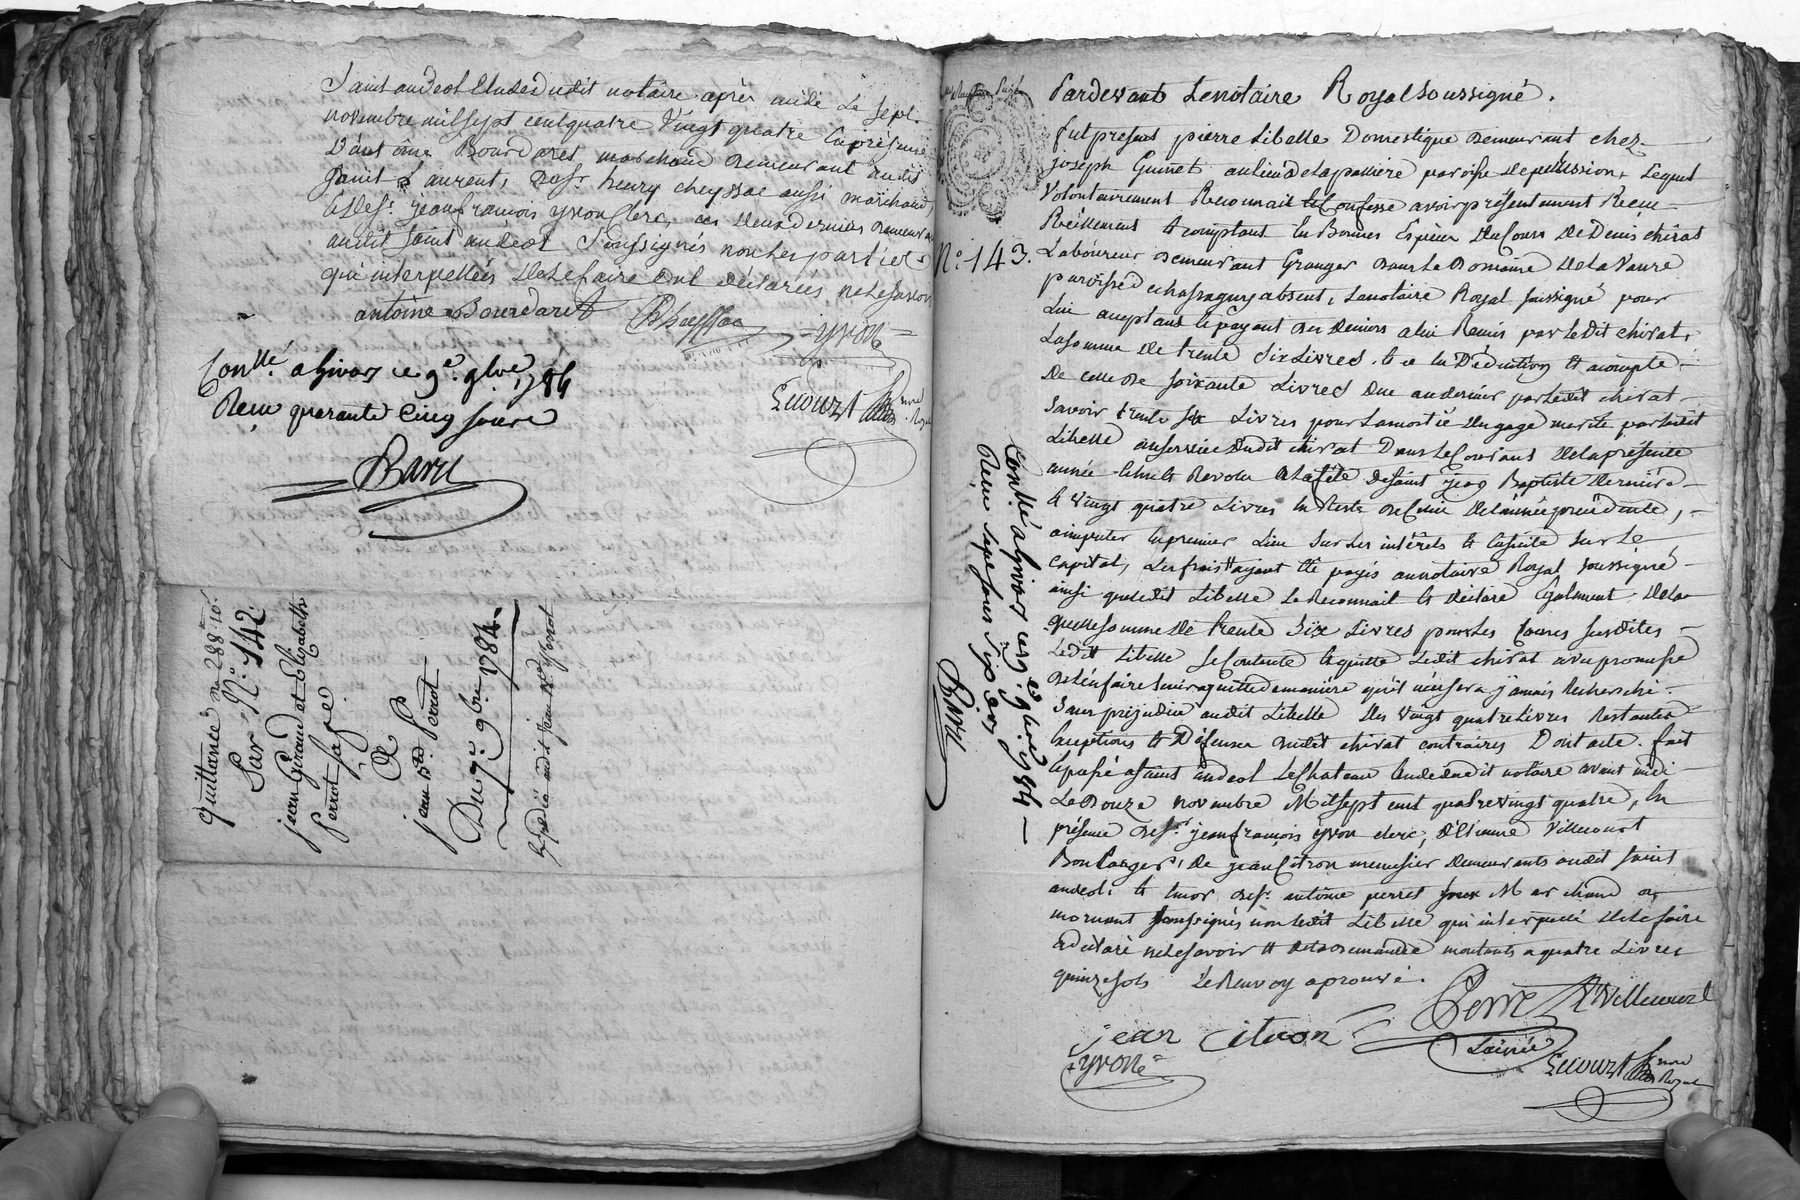 Saint andeol Etude dudit notaire après midi Le Sept
novembre mil sept cent quatre Vingt quatre En présence
d'antoine Bourdaret marchand demeurant audit
Saint Laurent, de sr. henry cheyssac aussi marchand,
& de sr. jean françois yvon clerc, ces deux derniers demeurant
audit Saint andéol Soussignés non les parties
qui interpellées de le faire ont déclarées ne le savoir
antoine Bourdaret
yvon
Lecourt nre Royal
Conllé a Givors ce 9e. 9bre 1784
Recu quarante Cinq Sous
Barri
Quittance de 288 tt 10 s
Par No. 142
jean Giraud et Elizabeth
Perrot Sa fe.
A
jean Bte Perrot
Du 7e. 9bre 1784
Expédié audit jean Bte perrot
Pardevant Le notaire Royal soussigné.
fut present pierre Libelle Domestique demeurant chez
joseph Guinet au lieu de la paviere paroisse de pelussion, Lequel
Volontairement Reconnait & Confesse avoir présentement Recu
Réellement & comptant En Bonnes Espèces du Cours de Denis chirat
No. 143.
Laboureur demeurant Granger dans Le Domaine de la Vaure
paroisse de chassagny absent, Le notaire Royal soussigné pour
Lui acceptant & payant des deniers a lui Remis par Ledit chirat,
La somme de trente Six Livres, & ce En Déduction & acompte
de celle de soixante Livres due au dernier par Ledit chirat
Savoir trente six Livres pour La moitié du gage merité par Ledit
Libelle au service dudit chirat Dans Le Courant de la présente
année échu & Revolu a La fête de saint jean Baptiste dernière
& Vingt quatre Livres En Reste de Celui de l'année précédente,
a imputer En premier Lieu Sur Les intérêts & Ensuite Sur Le
Capital, Les frais ayant été payés au notaire Royal soussigné
ainsi que Ledit Libelle Le Reconnait & déclare Egalement, de la
quelle somme de trente Six Livres pour Les Causes susdites
Ledit Libelle Se Contente & quitte Ledit chirat avec promesse
de L'en faire tenir quitte de manière qu'il n'en sera jamais Recherché
Sans préjudice audit Libelle des Vingt quatre Livres Restantes
Exceptions & Défenses dudit chirat contraires Dont acte. fait
& passé a Saint andeol Le chateau Etude dudit notaire avant midi
Le Douze novembre Mil sept cent quatre vingt quatre, En
présence de sr. jean françois yvon clerc, d'Etienne Villecourt
Boulanger, de jean Citron menusier demeurants audit Saint
andeol, & Encor de sr. antoine perret Marchand a
mornant Soussignés non Ledit Libelle qui interpellé de Le faire
a déclaré ne Le savoir & sa demande montant a quatre Livres
quinze sols Le Renvoy aprouvé.
Conllé a Givors ce 19e. 9bre 1784
Recu Sept Sous Six Den
Barri
Perret
L'ainé
Villecourt
jean citron
yvon
Lecourt nre Royal